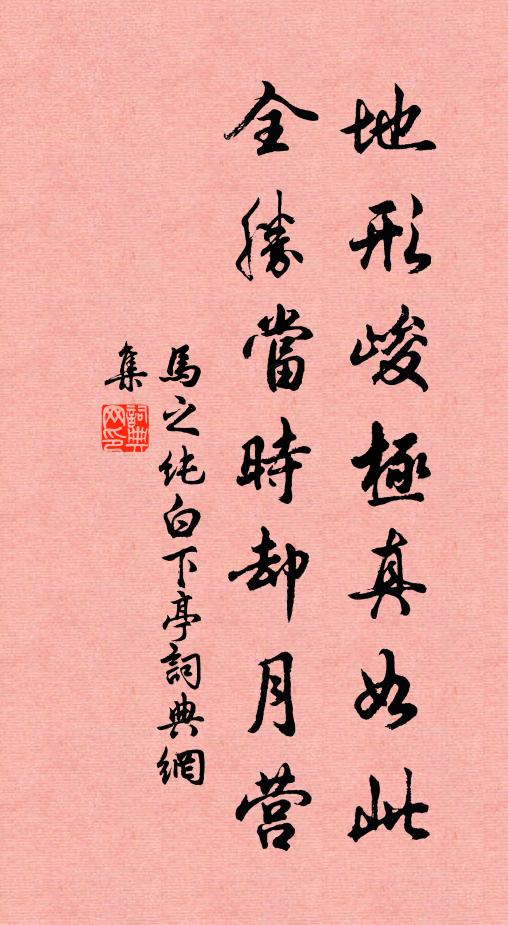 地形峻極真如此
全勝當時却月营
馬之纯白下亭詞典網
集
詞典网印